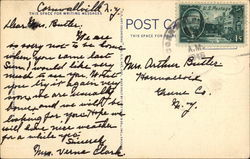 Cornwallville N.Y.
THIS SPACE FOR WRITING MESSAGES
POST CARD
THIS SPACE FOR
Dear Mrs. Butler.
We are
so sorry not to be home
when you came last
Sun. I would like very
much to see you. Not
you try it again
soon we are usually
home and we will be
looking for you. Hope we
will have nice weather
for a while yet.
Sincerely
Mrs. Verne Clark.
U.S. POSTAGE
A.M.
Mrs Arthur Butler
Hannacroix
Greene Co.
N.Y.